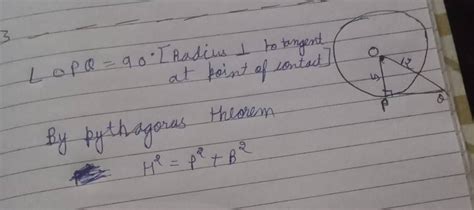 3
∠OPQ = 90° [Radius ⊥ to tangent
at point of contact]
O
12
5
P
Q
By pythagoras theorem
H² = P² + B²